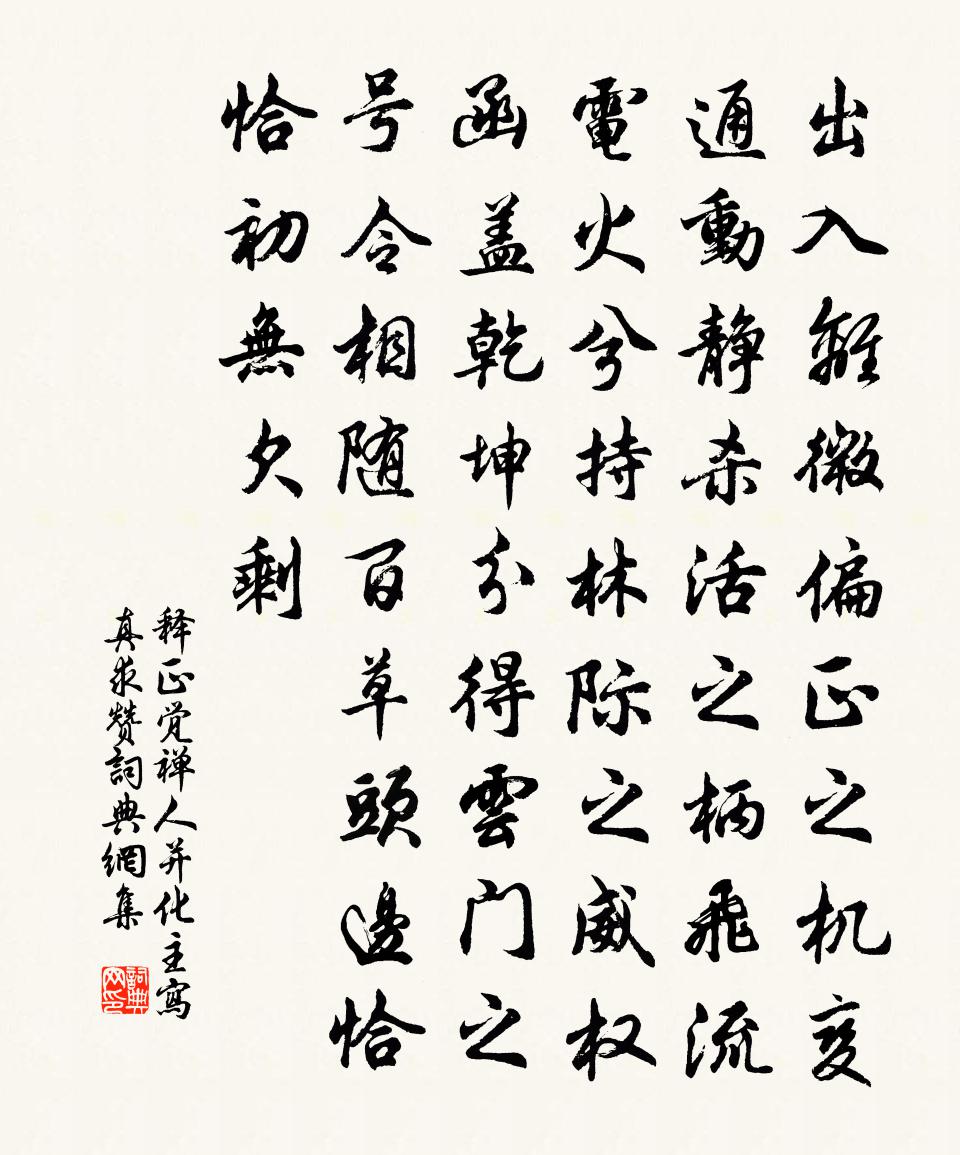 出入離微偏正之机变
通動静杀活之柄飛流
電火兮持林际之威权
函盖乾坤分得雲门之
号令相随百草頭邊恰
恰初無欠剩
释正觉禅人并化主寫
真求赞詞典網集
詞典
网印